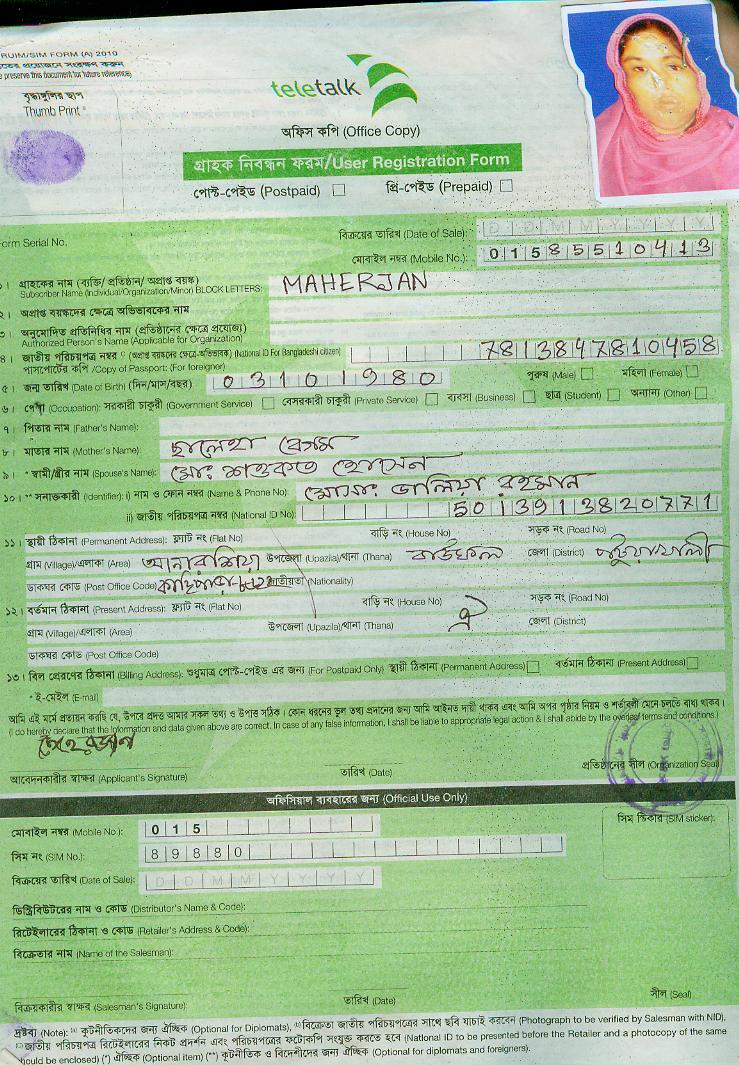 RUIM/SIM FORM (A) 2010
preserve this document for future reference)
বৃদ্ধাঙ্গুলির ছাপ
Thumb Print *
teletalk
অফিস কপি (Office Copy)
গ্রাহক নিবন্ধন ফরম/User Registration Form
পোস্ট-পেইড (Postpaid) প্রি-পেইড (Prepaid)
Form Serial No. বিক্রয়ের তারিখ (Date of Sale): D D M M Y Y Y Y
মোবাইল নম্বর (Mobile No.): 01585510413
১। গ্রাহকের নাম (ব্যক্তি/ প্রতিষ্ঠান/ অপ্রাপ্ত বয়স্ক)
Subscriber Name (Individual/Organization/Minor) BLOCK LETTERS: MAHERJAN
২। অপ্রাপ্ত বয়স্কদের ক্ষেত্রে অভিভাবকের নাম
৩। অনুমোদিত প্রতিনিধির নাম (প্রতিষ্ঠানের ক্ষেত্রে প্রযোজ্য)
Authorized Person's Name (Applicable for Organization)
৪। জাতীয় পরিচয়পত্র নম্বর (অপ্রাপ্ত বয়স্কদের ক্ষেত্রে-অভিভাবক) (National ID For Bangladeshi citizen) 7813847810458
পাসপোর্টের কপি /Copy of Passport: (For foreigner)
৫। জন্ম তারিখ (Date of Birth) (দিন/মাস/বছর) 03101980 পুরুষ (Male) মহিলা (Female)
৬। পেশা (Occupation): সরকারী চাকুরী (Government Service) বেসরকারী চাকুরী (Private Service) ব্যবসা (Business) ছাত্র (Student) অন্যান্য (Other)
৭। পিতার নাম (Father's Name):
৮। মাতার নাম (Mother's Name): ছালেহা বেগম
৯। * স্বামী/স্ত্রীর নাম (Spouse's Name): মোঃ শওকত হোসেন
১০। ** সনাক্তকারী (Identifier): i) নাম ও ফোন নম্বর (Name & Phone No): মোসাঃ ডালিয়া রহমান
ii) জাতীয় পরিচয়পত্র নম্বর (National ID No): 5013913820771
১১। স্থায়ী ঠিকানা (Permanent Address): ফ্ল্যাট নং (Flat No) বাড়ি নং (House No) সড়ক নং (Road No)
গ্রাম (Village)/এলাকা (Area) উপজেলা (Upazila)/থানা (Thana) বাউফল জেলা (District) পটুয়াখালী
ডাকঘর কোড (Post Office Code) জাতীয়তা (Nationality)
১২। বর্তমান ঠিকানা (Present Address): ফ্ল্যাট নং (Flat No) বাড়ি নং (House No) সড়ক নং (Road No)
গ্রাম (Village)/এলাকা (Area) উপজেলা (Upazila)/থানা (Thana) ঐ জেলা (District)
ডাকঘর কোড (Post Office Code)
১৩। বিল প্রেরণের ঠিকানা (Billing Address): শুধুমাত্র পোস্ট-পেইড এর জন্য (For Postpaid Only) স্থায়ী ঠিকানা (Permanent Address) বর্তমান ঠিকানা (Present Address)
* ই-মেইল (E-mail)
আমি এই মর্মে প্রত্যয়ন করছি যে, উপরে প্রদত্ত আমার সকল তথ্য ও উপাত্ত সঠিক। কোন ধরনের ভুল তথ্য প্রদানের জন্য আমি আইনত দায়ী থাকব এবং আমি অপর পৃষ্ঠার নিয়ম ও শর্তাবলী মেনে চলতে বাধ্য থাকব।
(I do hereby declare that the information and data given above are correct. In case of any false information, I shall be liable to appropriate legal action & I shall abide by the overleaf terms and conditions.)
মেহেরজান
আবেদনকারীর স্বাক্ষর (Applicant's Signature) তারিখ (Date) প্রতিষ্ঠানের সীল (Organization Seal)
অফিসিয়াল ব্যবহারের জন্য (Official Use Only)
মোবাইল নম্বর (Mobile No.): 015 সিম স্টিকার (SIM sticker):
সিম নং (SIM No.): 89880
বিক্রয়ের তারিখ (Date of Sale): D D M M Y Y Y Y
ডিস্ট্রিবিউটরের নাম ও কোড (Distributor's Name & Code):
রিটেইলারের ঠিকানা ও কোড (Retailer's Address & Code):
বিক্রেতার নাম (Name of the Salesman):
বিক্রয়কারীর স্বাক্ষর (Salesman's Signature): তারিখ (Date) সীল (Seal)
দ্রষ্টব্য (Note): কূটনীতিকদের জন্য ঐচ্ছিক (Optional for Diplomats), বিক্রেতা জাতীয় পরিচয়পত্রের সাথে ছবি যাচাই করবেন (Photograph to be verified by Salesman with NID),
জাতীয় পরিচয়পত্র রিটেইলারের নিকট প্রদর্শন এবং পরিচয়পত্রের ফটোকপি সংযুক্ত করতে হবে (National ID to be presented before the Retailer and a photocopy of the same
should be enclosed) (*) ঐচ্ছিক (Optional item) (**) কূটনীতিক ও বিদেশীদের জন্য ঐচ্ছিক (Optional for diplomats and foreigners).